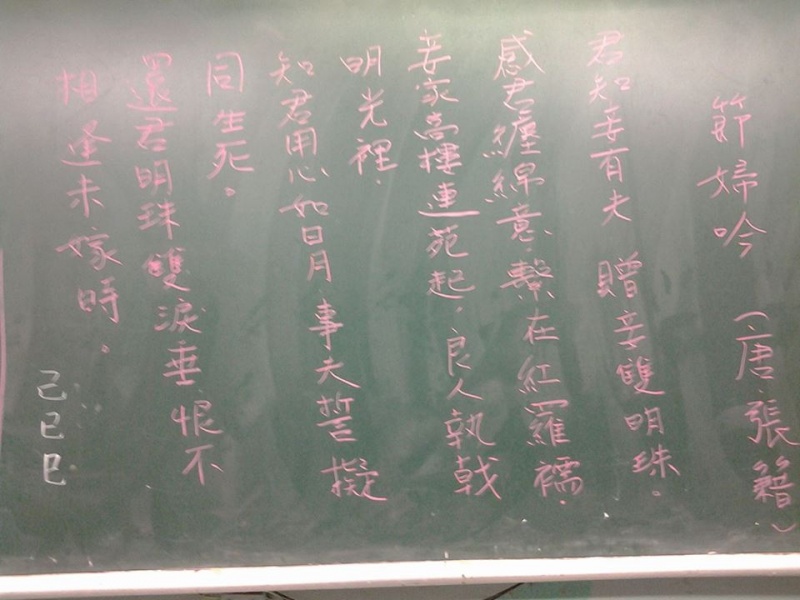 節婦吟 (唐.張籍.)
君知妾有夫 贈妾雙明珠。
感君纏綿意.繫在紅羅襦.
妾家高樓連苑起.良人執戟
明光裡.
知君用心如日月 事夫誓擬
同生死。
還君明珠雙淚垂.恨不
相逢未嫁時。
己已巳